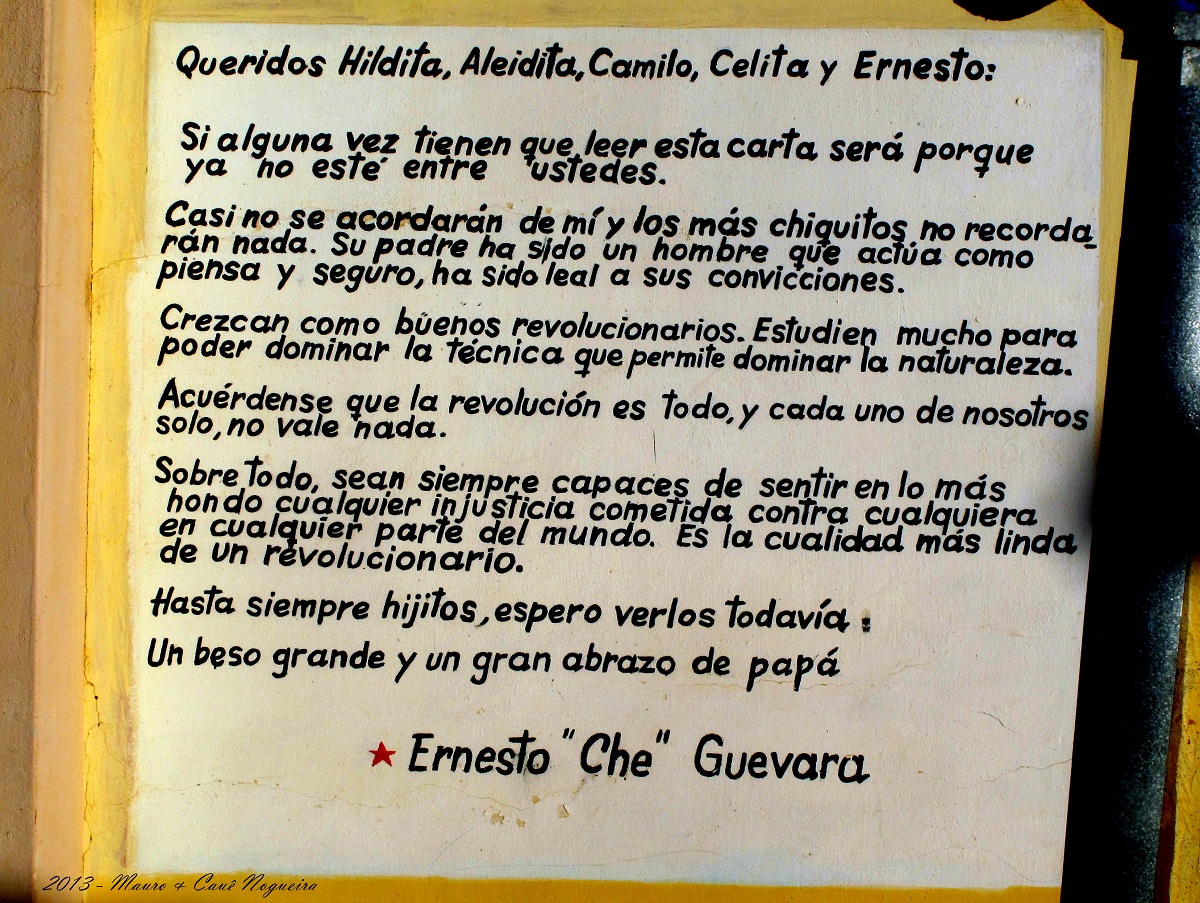 Queridos Hildita, Aleidita, Camilo, Celita y Ernesto:
Si alguna vez tienen que leer esta carta será porque
ya no esté entre ustedes.
Casi no se acordarán de mí y los más chiquitos no recorda_
rán nada. Su padre ha sido un hombre que actúa como
piensa y seguro, ha sido leal a sus convicciones.
Crezcan como buenos revolucionarios. Estudien mucho para
poder dominar la técnica que permite dominar la naturaleza.
Acuérdense que la revolución es todo, y cada uno de nosotros
solo, no vale nada.
Sobre todo, sean siempre capaces de sentir en lo más
hondo cualquier injusticia cometida contra cualquiera
en cualquier parte del mundo. Es la cualidad más linda
de un revolucionario.
Hasta siempre hijitos, espero verlos todavía.
Un beso grande y un gran abrazo de papá
Ernesto "Che" Guevara
2013 - Mauro & Cauê Nogueira